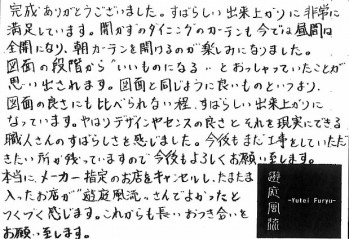 完成ありがとうございました。すばらしい出来上がりに非常に
満足しています。開かずのダイニングのカーテンも今では昼間は
全開になり、朝カーテンを開けるのが楽しみになりました。
図面の段階から“いいものになる”とおっしゃっていたことが
思い出されます。図面と同じように良いものというより、
図面の良さにも比べられない程、すばらしい出来上がりに
なっています。やはりデザインやセンスの良さとそれを現実にできる
職人さんのすばらしさを感じました。今後もまだ工事をしていただ
きたい所が残っていますので今後もよろしくお願い致します。
本当に、メーカー指定のお店をキャンセルし、たまたま
入ったお店が“遊庭風流”さんでよかったと
つくづく感じます。これからも長いおつき合いを
お願い致します。
遊庭風流
-Yutei Furyu-